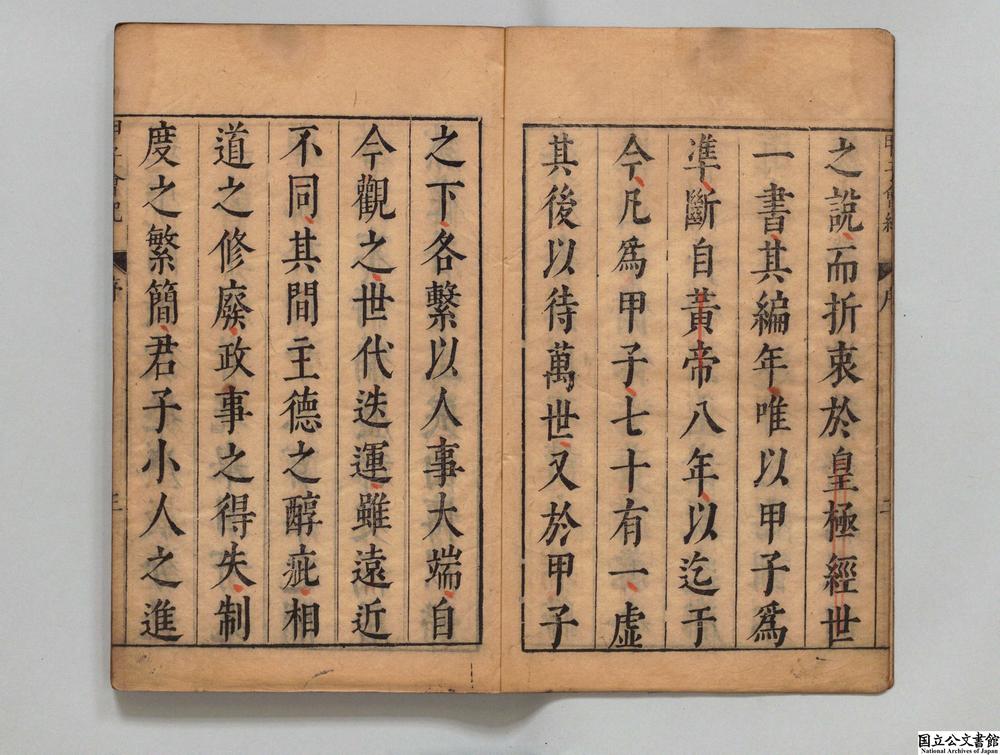 之說而折衷於皇極經世
一書其編年唯以甲子爲
準斷自黃帝八年以迄于
今凡爲甲子七十有一虛
其後以待萬世又於甲子
之下各繫以人事大端自
今觀之世代迭運雖遠近
不同其間主德之醇疵相
道之修廢政事之得失制
度之繁簡君子小人之進
国立公文書館
National Archives of Japan